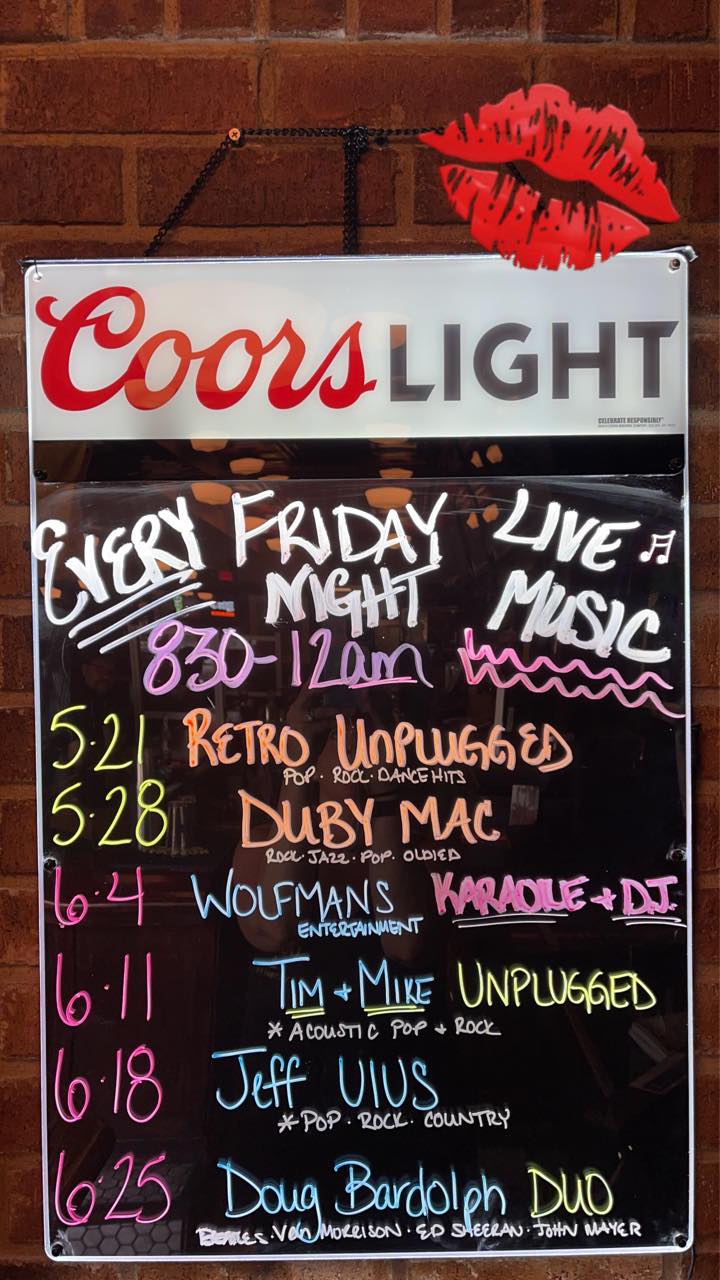 Coors LIGHT
CELEBRATE RESPONSIBLY
EVERY FRIDAY LIVE
NIGHT MUSIC
830-12am
5.21 RETRO UNPLUGGED
POP. ROCK. DANCE HITS
5.28 DUBY MAC
ROCK. JAZZ. POP. OLDIED
6.4 WOLFMANS KARAOKE + D.J.
ENTERTAINMENT
6.11 TIM + MIKE UNPLUGGED
* ACOUSTIC POP + ROCK
6.18 Jeff VIUS
* POP. ROCK. COUNTRY
6.25 Doug Bardolph DUO
BEATLES. VAN MORRISON. ED SHEERAN. JOHN MAYER